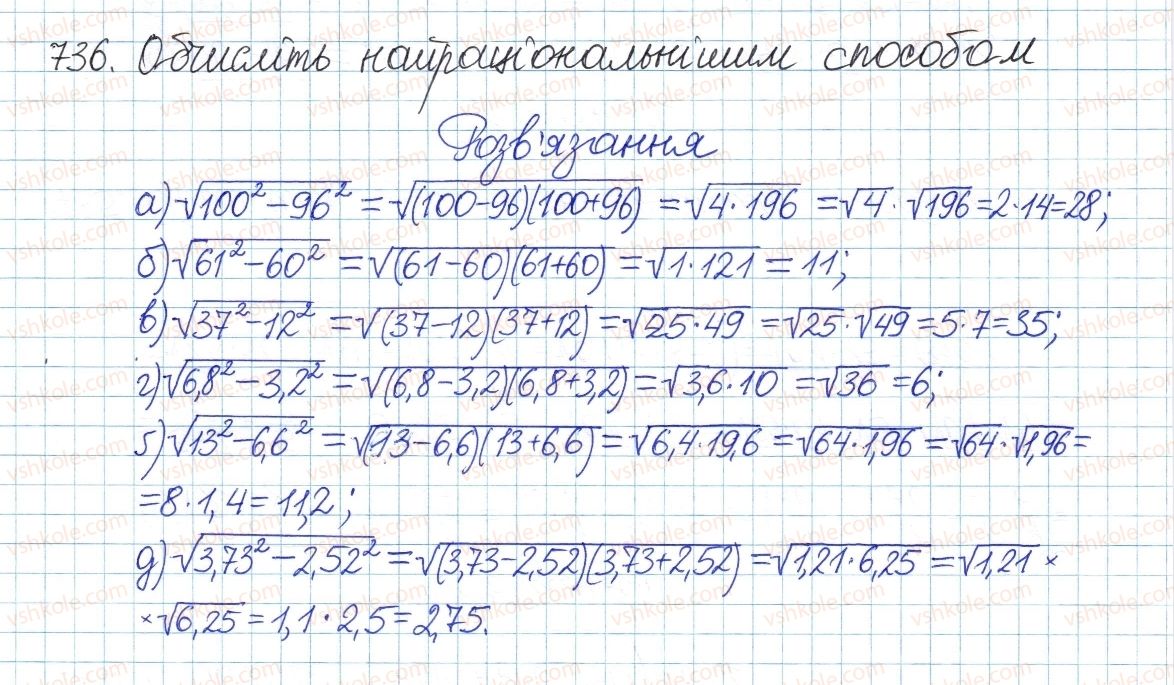 736. Обчисліть найраціональнішим способом
Розв'язання
а) √(100² - 96²) = √((100-96)(100+96)) = √(4·196) = √4 · √196 = 2·14 = 28;
б) √(61² - 60²) = √((61-60)(61+60)) = √(1·121) = 11;
в) √(37² - 12²) = √((37-12)(37+12)) = √(25·49) = √25 · √49 = 5·7 = 35;
г) √(6,8² - 3,2²) = √((6,8-3,2)(6,8+3,2)) = √(3,6·10) = √36 = 6;
ґ) √(13² - 6,6²) = √((13-6,6)(13+6,6)) = √(6,4·19,6) = √(64·1,96) = √64 · √1,96 =
= 8·1,4 = 11,2;
д) √(3,73² - 2,52²) = √((3,73-2,52)(3,73+2,52)) = √(1,21·6,25) = √1,21 ×
× √6,25 = 1,1·2,5 = 2,75.